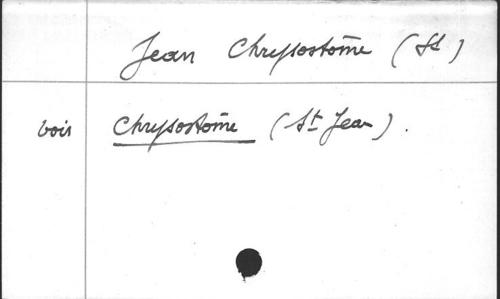 Jean Chrysostome (St)
voir Chrysostome (St Jean).